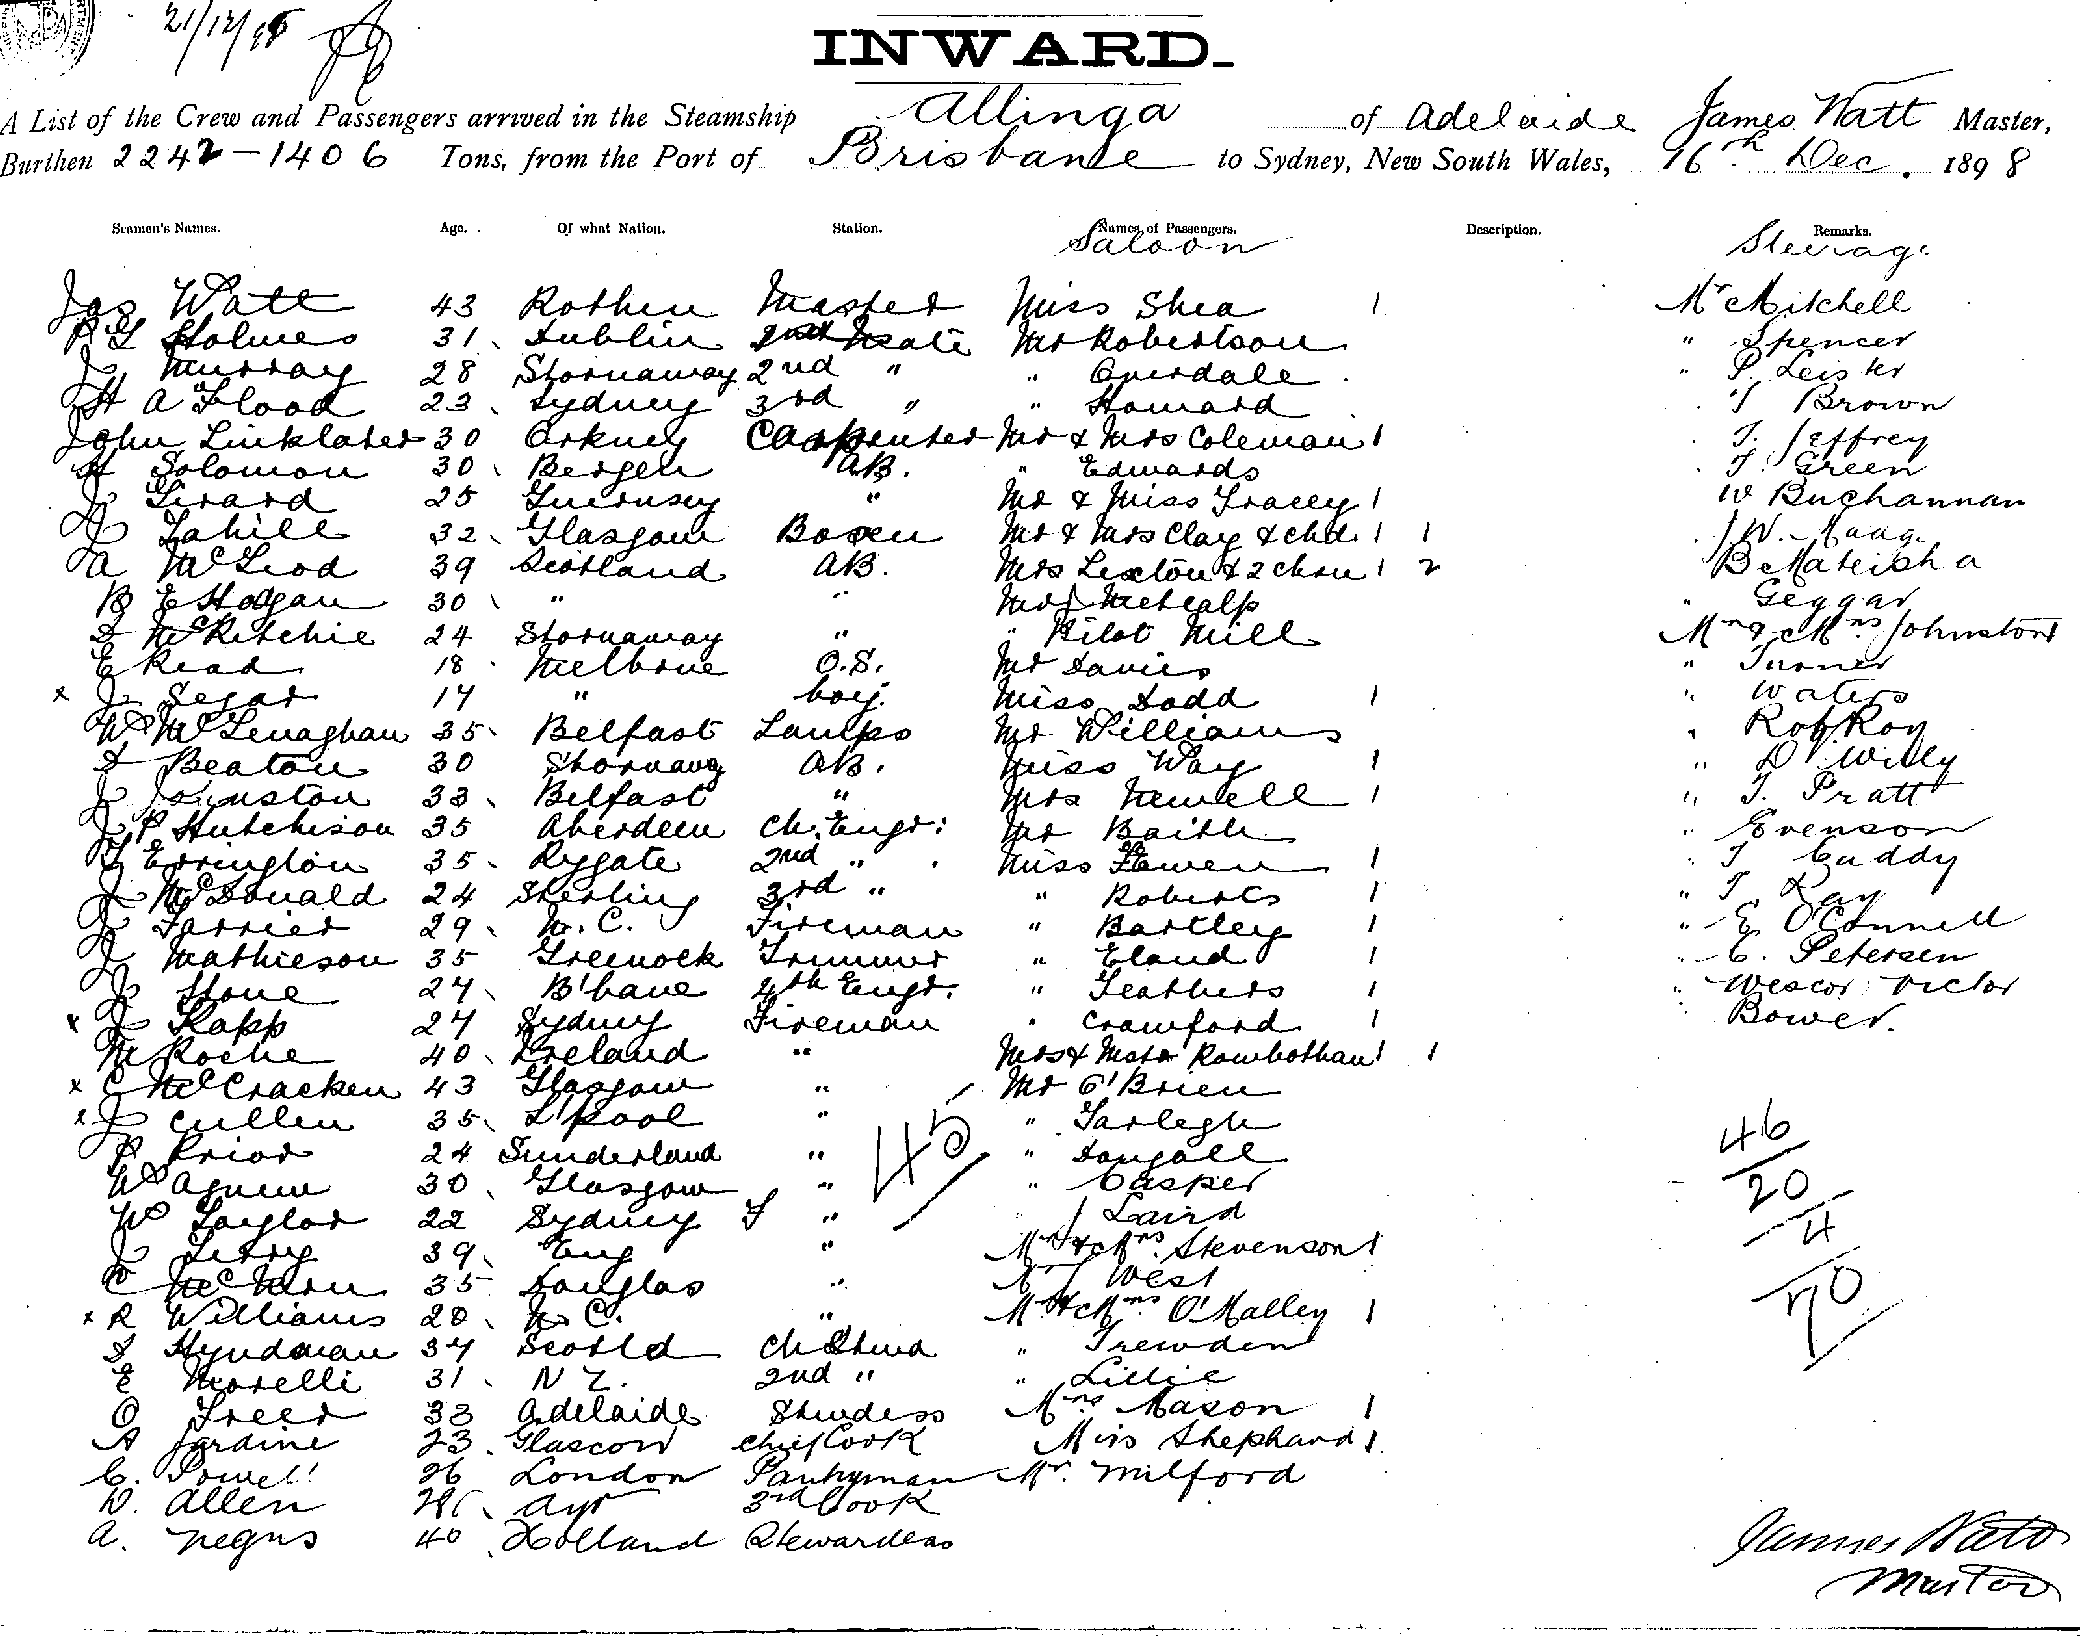 21/12/98
INWARD.
A List of the Crew and Passengers arrived in the Steamship Allinga of Adelaide James Watt Master,
Burthen 2242-1406 Tons, from the Port of Brisbane to Sydney, New South Wales, 16th Dec. 1898
Seamen's Names. Age. Of what Nation. Station. Names of Passengers. Description. Remarks.
Saloon Steerage
Jas Watt 43 Master Miss Shea 1 Mr Mitchell
P G Holmes 31 Dublin Mate Mr Robertson " Spencer
J Murray 28 Stornaway 2nd " " Overdale " P. Leister
H A Flood 23 Sydney 3rd " " Howard T Brown
John Linklater 30 Orkney Carpenter Mr & Mrs Coleman 1 T. Jeffrey
A Solomon 30 Bergen AB. " Edwards T. Green
J Girard 25 Guernsey " Mr & Miss Tracey 1 W Buchannan
J Cahill 32 Glasgow Bosen Mr & Mrs Clay & chd. 1 1 J W. Maag
A McLeod 39 Scotland AB. Mrs Lexton & 2 chrn 1 2 B Mateisha
B E Hogan 30 " " Mr J Metcalf " Geggar
D McRitchie 24 Stornaway " " Pilot Mill Mr & Mrs Johnston
E Read 18 Melbrne O.S. Mr Davies " Turner
x J Segar 17 " boy. Miss Dodd 1 " Waters
W McLenaghan 35 Belfast Lamps Mr Williams " Rob Roy
D Beaton 30 Stornawy AB. Miss Way 1 " D Willy
J Johnston 33 Belfast " Mrs Newell 1 " T. Pratt
J P Hutchison 35 Aberdeen Ch. Engr: Mr Baith " Evenson
G Errington 35 Rygate 2nd " Miss 1 " T Cuddy
J McDonald 24 Sterling 3rd " " Roberts 1 " T Ray
J Farrier 29 N. C. Fireman " Bartley 1 " E O'Connell
J Mathieson 35 Greenock Trimmer " Eland 1 " C. Petersen
J Stone 27 B'bane 4th Engr. " Feathers 1 " Wescot Victor
x J Kapp 27 Sydney Fireman " Crawford 1 " Bower.
M Roche 40 Ireland " Mrs & Mstr Rowbotham 1 1
x C McCracken 43 Glasgow " Mr O'Brien
x J Cullen 35 L'pool " " Farlegh
P Prior 24 Sunderland " " Dougall
W Agnew 30 Glasgow " " Casper
W Taylor 22 Sydney F " " Laird
J Terry 39 Eng " Mr & Mrs Stevenson 1
C 35 Douglas " Mr J West
x R Williams 20 N. C. " Mr & Mrs O'Malley 1
D Hyndman 37 Scotld Ch Stwd " Trewden
E Morelli 31 N Z. 2nd " " Lillie
O Freer 33 Adelaide Stwdess Mrs Mason 1
A Jardine 23 Glascow Chief Cook Miss Shephard 1
C. Powell 26 London Pantryman Mr. Milford
D. Allen Ayr 3rd Cook
A. Negus 40 Holland Stewardess
45
46
20
4
70
James Watt
Master